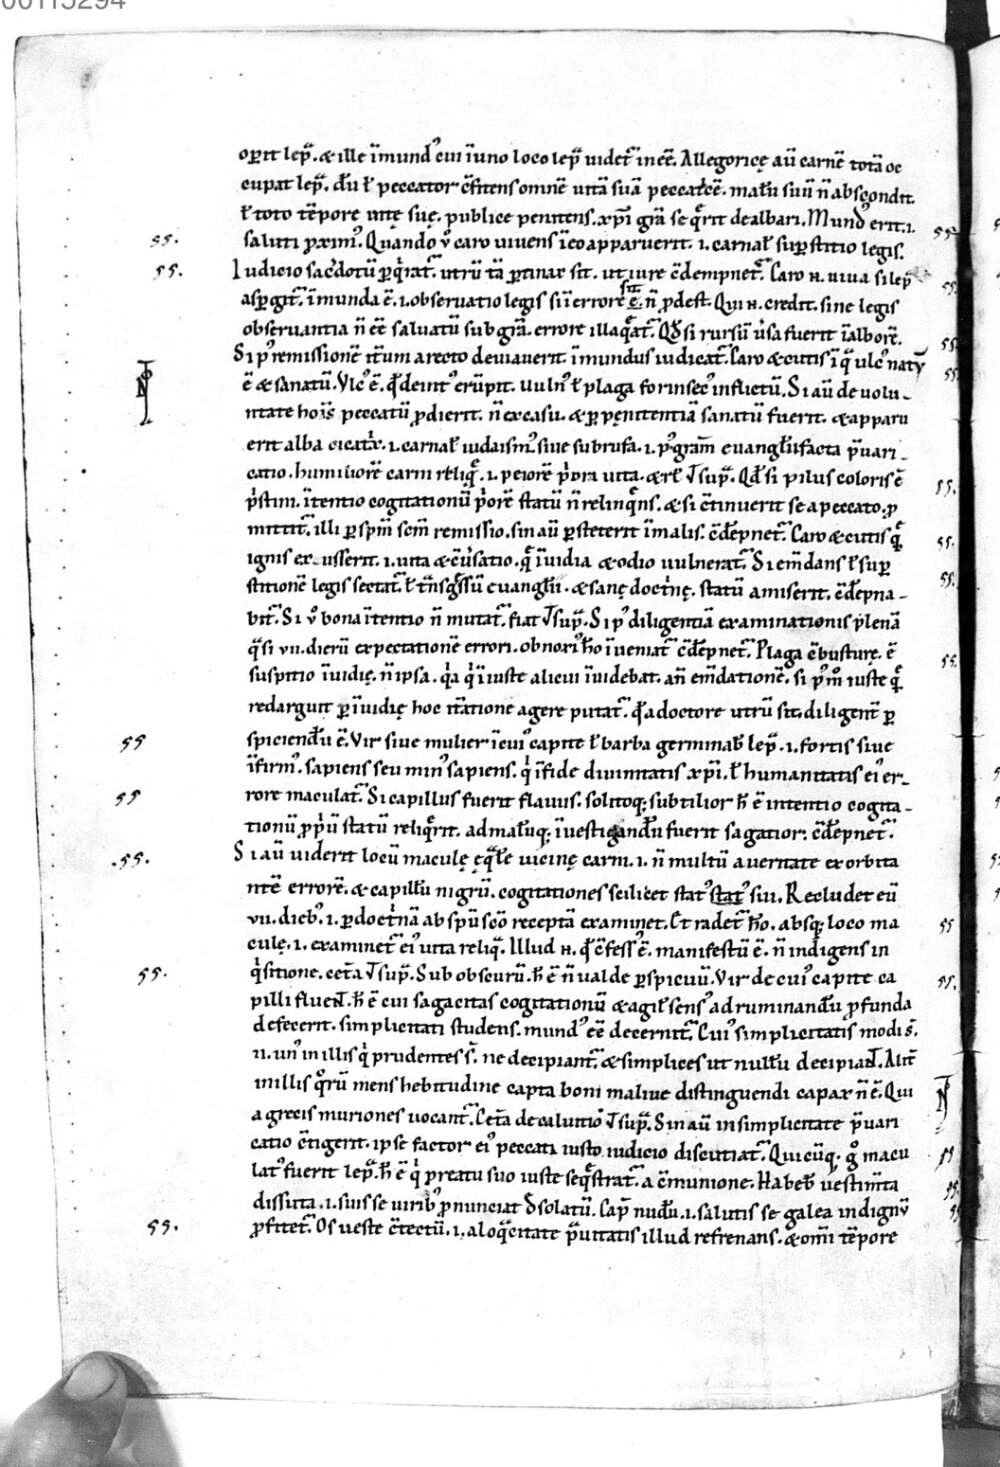 00115294
opit lep̄. & ille īmund᾽ cui ī uno loco lep̄ uidet᷑ inēē. Allegoricę aū carnē totā oc
cupat lep̄. dū ł peccator c̄fitens omnē uitā suā peccatēē. malū suū n̄ abscondit.
ł toto tēpore uitę suę. publice penitens. xp̄i grā se q̄rit dealbari. Mund᾽ erit .i.
55. saluti proxim᾽. Quando ū caro uiuens ī eo apparuerit .i. carnał sup̱stitio legis.
55. Iudicio sacdotū p̱q̇rat᷑. utrū tā p̱tinax sit. ut iure c̄dempnet᷑. Caro .n. uiua si lep̄
asp̱git᷑. īmunda ē .i. obseruatio legis si ī errore sit ē. n̄ p̱dest. Qui .n. credit. sine legis
obseruantia n̄ ēē saluatū sub grā. errore illaq̄at᷑. Qđ si rursū ūsa fuerit ī alborē.
Si p᾽ remissionē itūm a recto deuiauerit. īmundus iudicat᷑. Caro & cutis ī q̄ ulc᾽ natū
ē & sanatū. Vlc᾽ ē. qđ de int᾽ erūpit. uuln᾽ ł plaga forinsec᾽ inflictū. Si aū de uolu-
ntate hoīs peccatū p̱dierit. n̄ ex casu. & p̱ pęnitentiā sanatū fuerit. & apparu
erit alba cicat̓x .i. carnał iudaism᾽ siue subrufa .i. p᾽ gram̄ euangłii facta p̄uari-
catio. humiliorē carni reliq̄ .i. peiorē p̓ori uita. & rł uł sup̄. Qđ si pilus coloris ē
p̓stini. ītentio cogitationū p̓orē statū n̄ relinq̄ns. & si c̄tinuerit se a peccato. p̱
mittit᷑. illi p̱ sp̄m sc̄m remissio. sin aū p̱stēterit ī malis. c̄dēpnet᷑. Caro & cutis q̄
ignis ex usserit .i. uita & c̄uersatio. q̄ īuidia & odio uulnerat᷑. Si emdans ł sup̱
stitionē legis sectat᷑. ł t̄nsg̓ssū euangłii. & sanę doct̓nę. statū amiserit. c̄dēpna-
bit᷑. Si ū bona ītentio n̄ mutat᷑. fiat uł sup̄. Si p᾽ diligentiā examinationis plenā
q̄si .vii. dierū expectationē errori. obnoxi᾽ ħo īueniat᷑ c̄dēpnet᷑. Plaga c̄busturę. ē
suspitio īuidię. n̄ ipsa. q̓a q̓ iniuste alicui īuidebat. an̄ emdationē. si p᾽mo iuste q̄
redarguit p̱ īuidię hoc itatione agere putat᷑. qđ a doctore utrū sit. diligent̄ p̱
55 spiciendū ē. Vir siue mulier ī cui᾽ capite ł barba germinab̄ lep̄ .i. fortis siue
īfirm᾽. sapiens seu min᾽ sapiens. q̓ ī fide diuinitatis xp̄i. ł humanitatis ei᾽ er-
55 rore maculat᷑. Si capillus fuerit flauus. solitoq; subtilior h̄ ē intentio cogita-
tionū p̱p̓ū statū reliq̄rit. ad malūq; īuestigandū fuerit sagatior: c̄dēpnet᷑.
.55. Si aū uiderit locū maculę ęq̄lē uicinę carni .i. n̄ multū a ueritate exorbita
ntē errorē. & capillū nigrū. cogitationes scilicet stat᾽ stat᾽ sui. Recludet eū
vii. dieb᾽ .i. p̱ doct̓nā ab sp̄u sc̄o receptā examinet. Et radet᷑ ħo. absq; loco ma
culę .i. examinet᷑ ei᾽ uita reliq̄. Illud .n. qđ c̄fess᾽ ē. manifestū ē. n̄ indigens in
55. q̓sitione. cet̄a uł sup̄. Sub obscurū. h̄ ē n̄ ualde p̱spicuū. Vir de cui᾽ capite ca
pilli fluēt. h̄ ē cui sagacitas cogitationū & agil̄ sens᾽ ad ruminandū p̱funda
defecerit. simplicitati studens. mund᾽ ēē decernit᷑. Cui᾽ simplicitatis modi s̄.
.ii. un᾽ in illis q̓ prudentes s̄. ne decipiant᷑. & simplices ut nullū decipiant. Alit̄
in illis q̄rū mens hebitudine capta boni maliue distinguendi capax n̄ ē. Qui
a grecis muriones uocant᷑. Cet̄a de caluitio uł sup̄. Sin aū in simplicitate p̄uari
catio c̄tigerit. ipse factor ei᾽ peccati iusto iudicio discutiat᷑. Quicūq; g̊ macu
lat᾽ fuerit lep̄. h̄ ē q̓ p̱ reatu suo iuste seq̄strat᷑. a c̄munione. Habeb̄ uestimta
dissuta .i. suis se uirib᾽ p̱nunciat đsolatū. Cap̄ nudū .i. salutis se galea indignū
55. p̱fitet᷑. Os ueste c̄tectū .i. a loq̄citate p̄uitatis illud refrenans. & omi tēpore